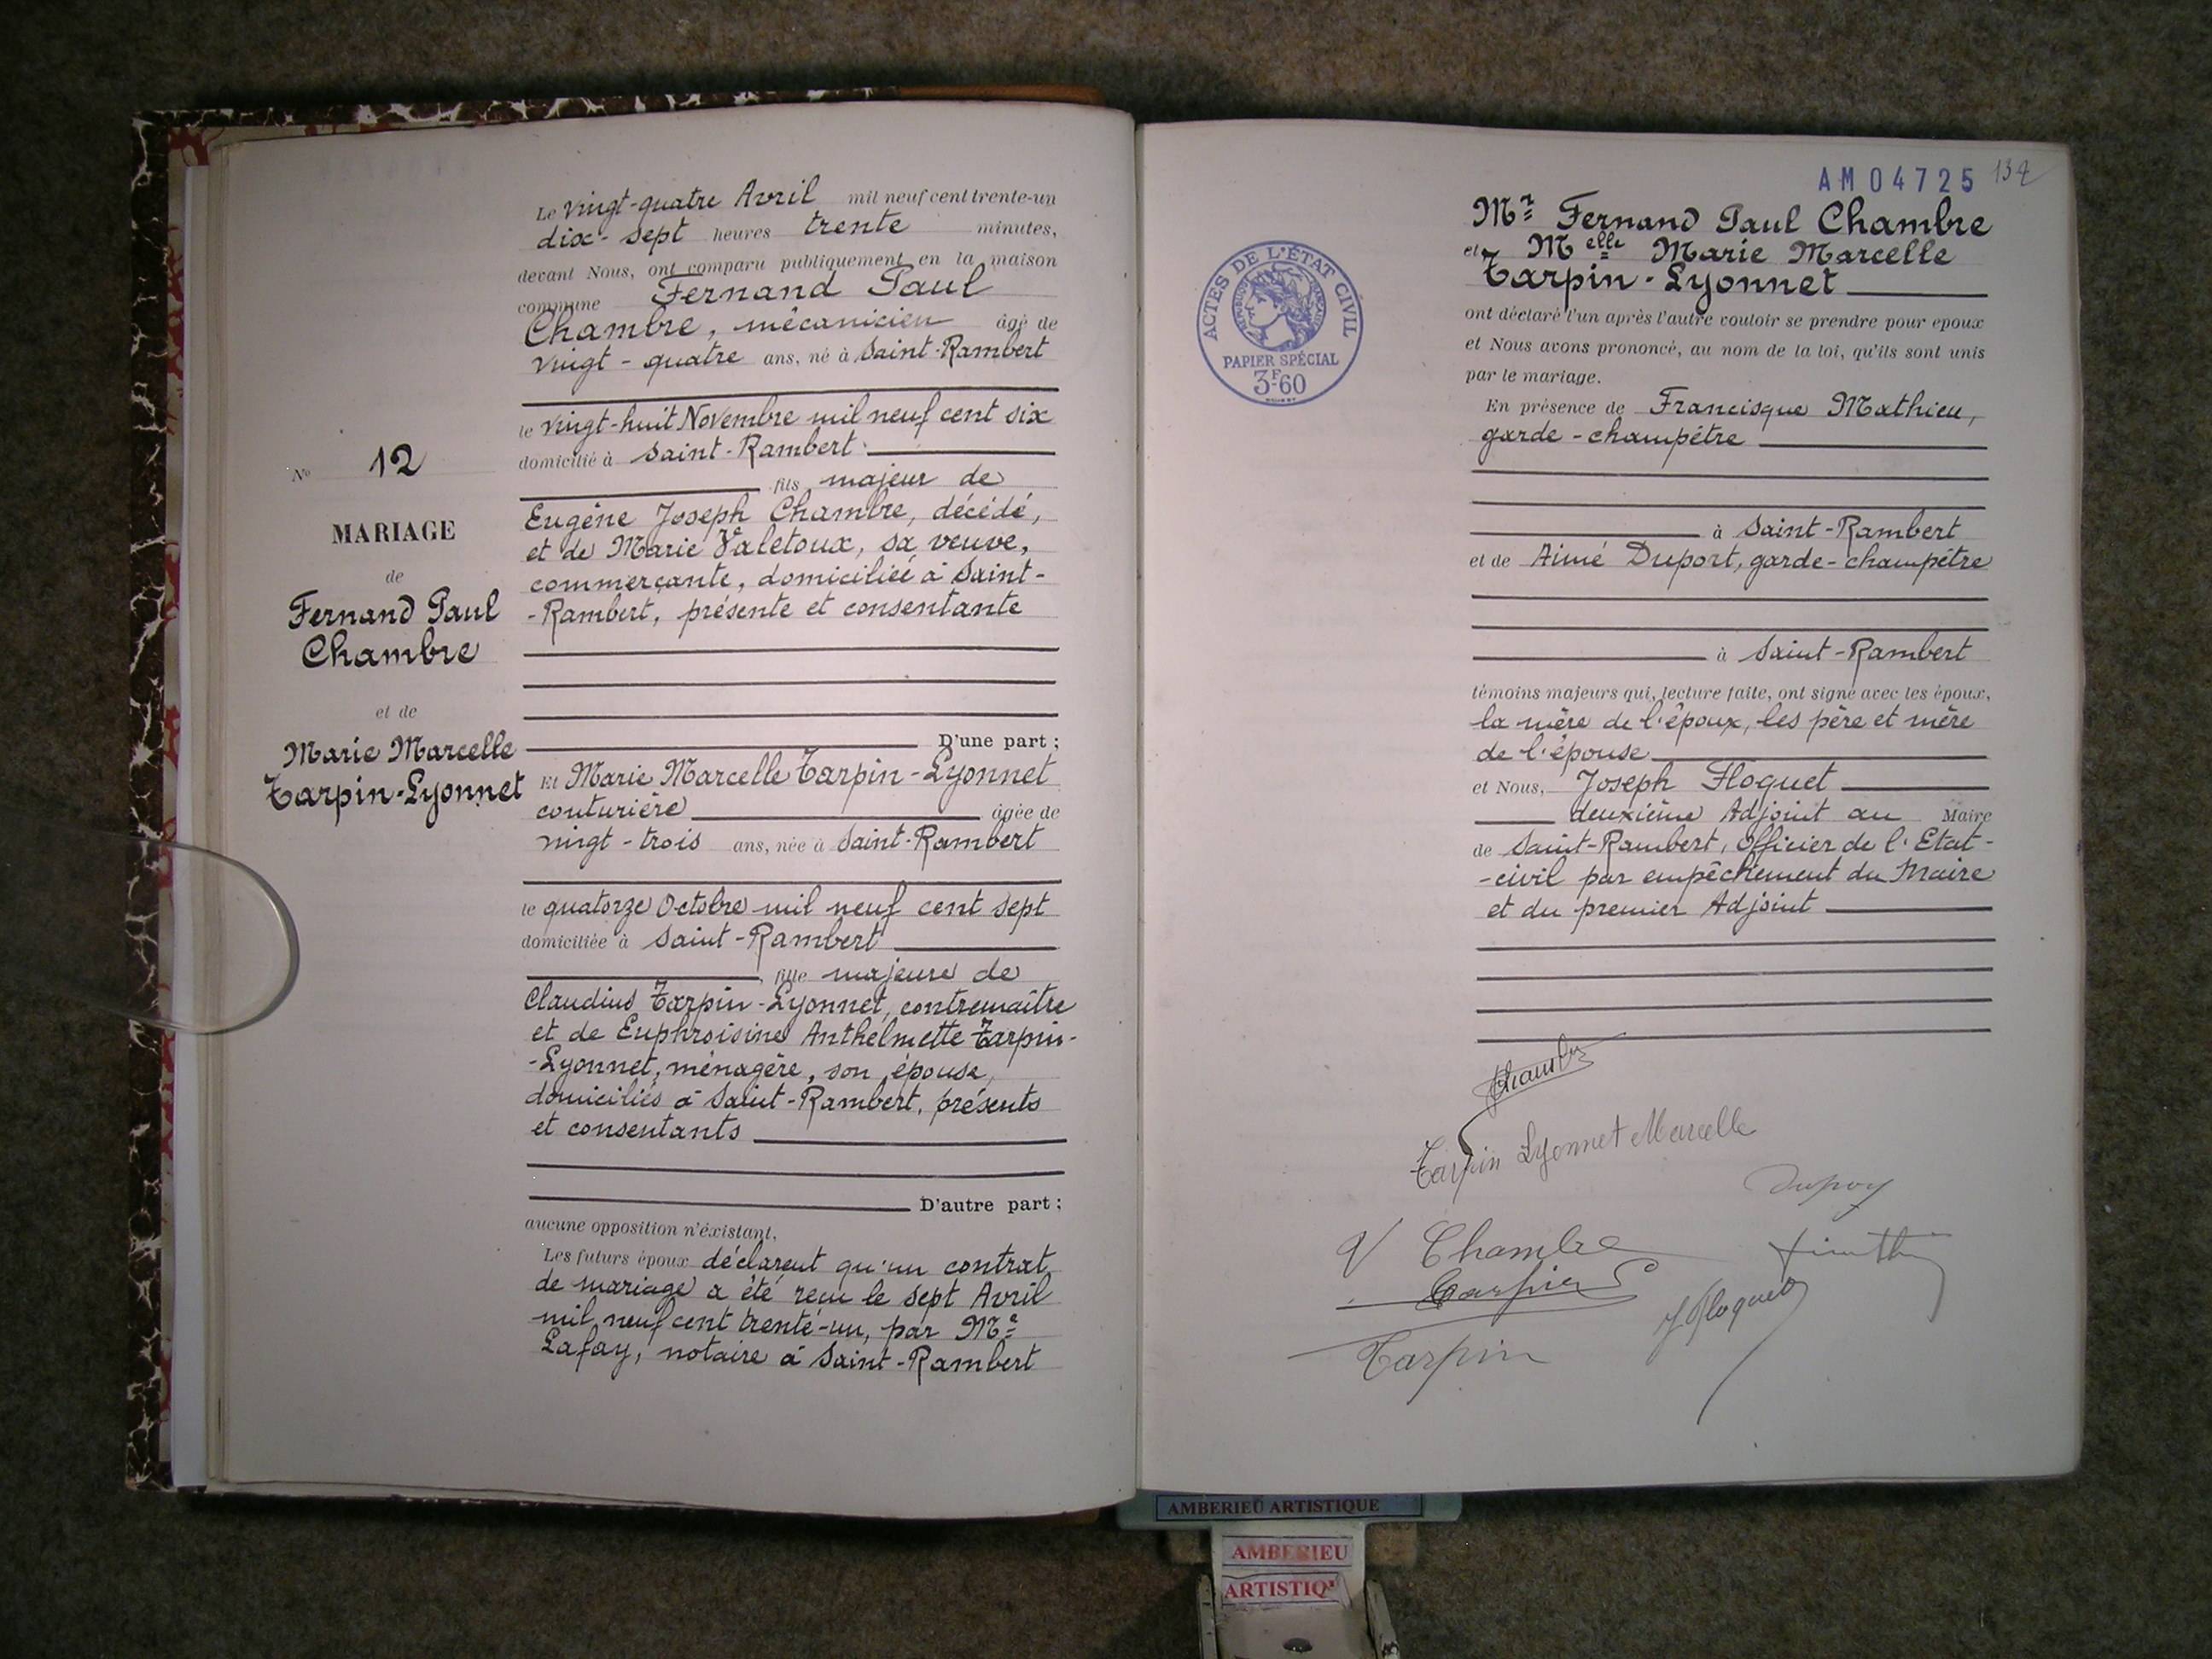 Le vingt-quatre Avril mil neuf cent trente-un
dix-sept heures trente minutes,
devant Nous, ont comparu publiquement en la maison
commune Fernand Paul
Chambre, mécanicien âgé de
vingt-quatre ans, né à Saint-Rambert
le vingt-huit Novembre mil neuf cent six
domicilié à Saint-Rambert
fils majeur de
Eugène Joseph Chambre, décédé,
et de Marie Valetoux, sa veuve,
commerçante, domiciliée à Saint-
-Rambert, présente et consentante
D'une part ;
Et Marie Marcelle Tarpin-Lyonnet
couturière âgée de
vingt-trois ans, née à Saint-Rambert
le quatorze Octobre mil neuf cent sept
domiciliée à Saint-Rambert
fille majeure de
Claudius Tarpin-Lyonnet, contremaître
et de Euphroisine Anthelmette Tarpin-
-Lyonnet, ménagère, son épouse,
domiciliés à Saint-Rambert, présents
et consentants
D'autre part ;
aucune opposition n'éxistant,
Les futurs époux déclarent qu'un contrat
de mariage a été reçu le sept Avril
mil neuf cent trente-un, par Me
Lafay, notaire à Saint-Rambert
No 12
MARIAGE
de
Fernand Paul
Chambre
et de
Marie Marcelle
Tarpin-Lyonnet
AM04725
132
Mr Fernand Paul Chambre
et Melle Marie Marcelle
Tarpin-Lyonnet
ont déclaré l'un après l'autre vouloir se prendre pour epoux
et Nous avons prononcé, au nom de la loi, qu'ils sont unis
par le mariage.
En présence de Francisque Mathieu,
garde-champêtre
à Saint-Rambert
et de Aimé Duport, garde-champêtre
à Saint-Rambert
témoins majeurs qui, lecture faite, ont signé avec les époux,
la mère de l'époux, les père et mère
de l'épouse
et Nous, Joseph Floquet
deuxième Adjoint au Maire
de Saint-Rambert, Officier de l'Etat-
-civil par empêchement du Maire
et du premier Adjoint
ACTES DE L'ÉTAT CIVIL
RÉPUBLIQUE FRANÇAISE
PAPIER SPÉCIAL
3F60
Chambre
Tarpin Lyonnet Marcelle
Chambre
Tarpin
J Floquet
Tarpin
AMBERIEU ARTISTIQUE
AMBERIEU
ARTISTIQ